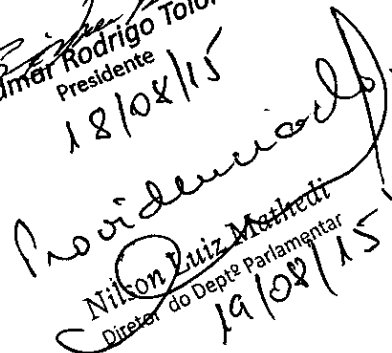 Rodrigo
Presidente
18/08/15
Providenciado
Nilson Luiz Mathedi
Diretor do Deptº Parlamentar
19/08/15